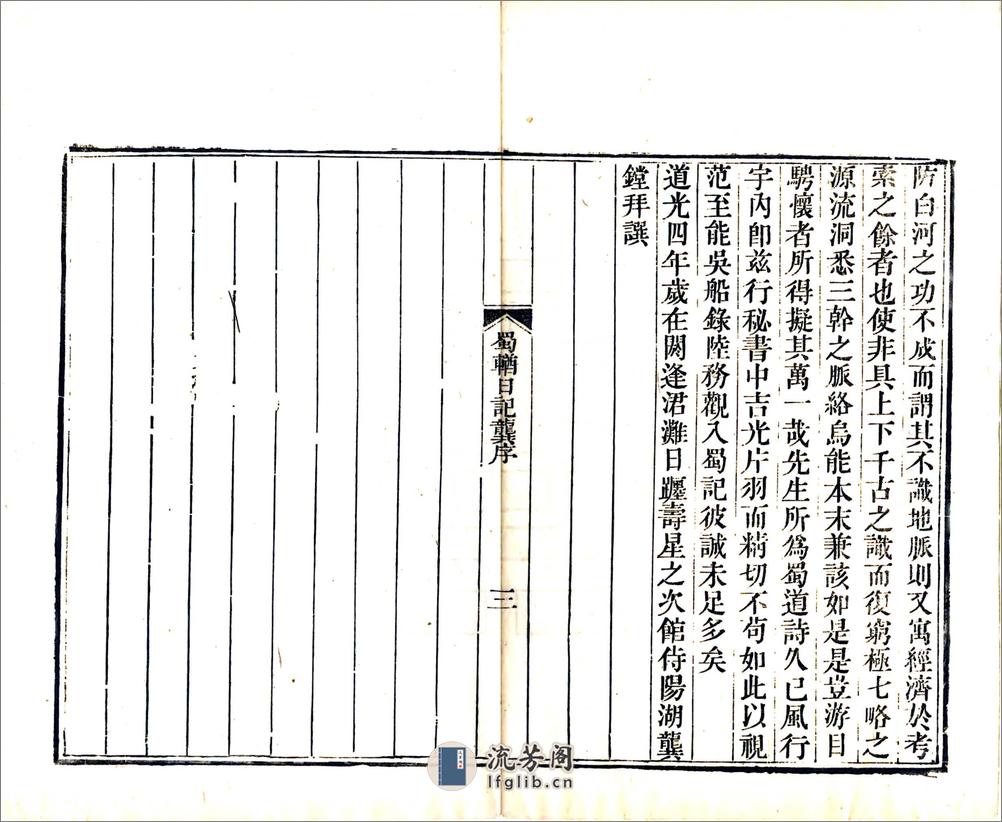 防白河之功不成而謂其不識地脈則又寓經濟於考
索之餘者也使非具上下千古之識而復窮極七略之
源流洞悉三幹之脈絡烏能本末兼該如是是豈游目
騁懷者所得擬其萬一哉先生所為蜀道詩久已風行
宇內卽兹行秘書中吉光片羽而精切不苟如此以視
范至能吳船錄陸務觀入蜀記彼誠未足多矣
道光四年歲在閼逢涒灘日躔壽星之次館侍陽湖龔
鏜拜譔
蜀輶日記龔序
三
流芳阁
lfglib.cn